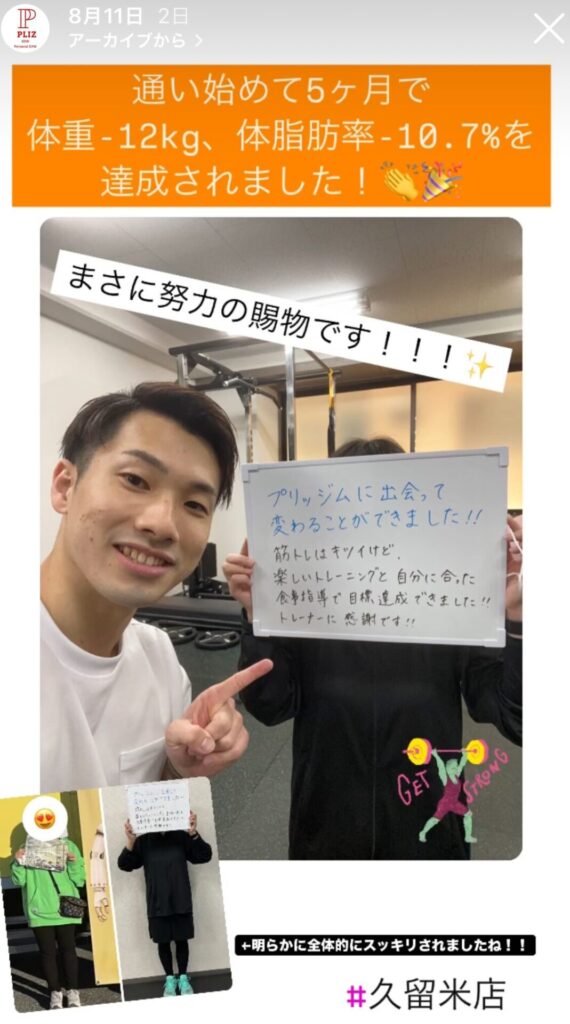 P
PLIZ
GYM
Personal GYM
8月11日 2日
アーカイブから
通い始めて5ヶ月で
体重-12kg、体脂肪率-10.7%を
達成されました！👏🎉
まさに努力の賜物です！！！✨
プリッジムに出会って
変わることができました!!
筋トレはキツイけど、
楽しいトレーニングと自分に合った
食事指導で目標達成できました!!
トレーナーに感謝です!!
GET STRONG
←明らかに全体的にスッキリされましたね！！
#久留米店